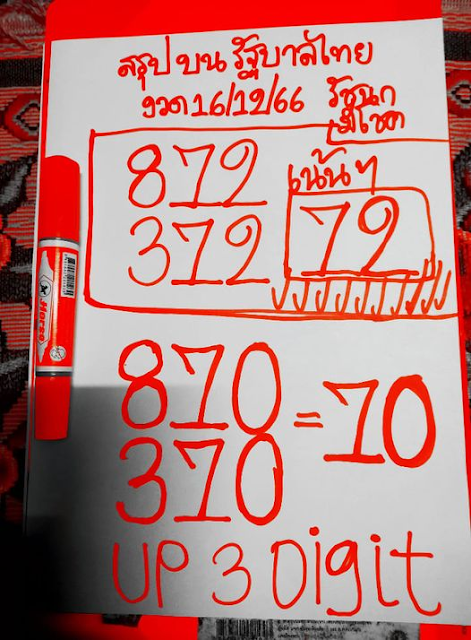 สรุป บน รัฐบาลไทย
งวด 16/12/66 รัชนก
มีโชค
872 เน้นๆ
372 72
870 = 70
370
UP 3 Digit
Horse